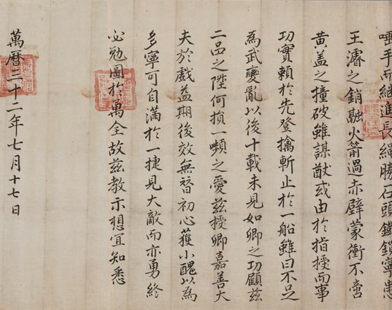 唾手而繼進長繩勝石頭鐵鎖寧患
王濬之銷融火箭過赤壁蒙衝不啻
黃蓋之撞破雖謀猷或由於指授而事
功實賴於先登擒斬止於一船雖曰不足
為武變亂以後十載未見如卿之功顧茲
二品之陞何損一嚬之愛茲授卿嘉善大
夫於戲益期後效無替初心蒦小醜以為
多寧可自滿於一捷見大敵而亦勇終
必勉圖於萬全故茲教示想宜知悉
萬曆三十二年七月十七日